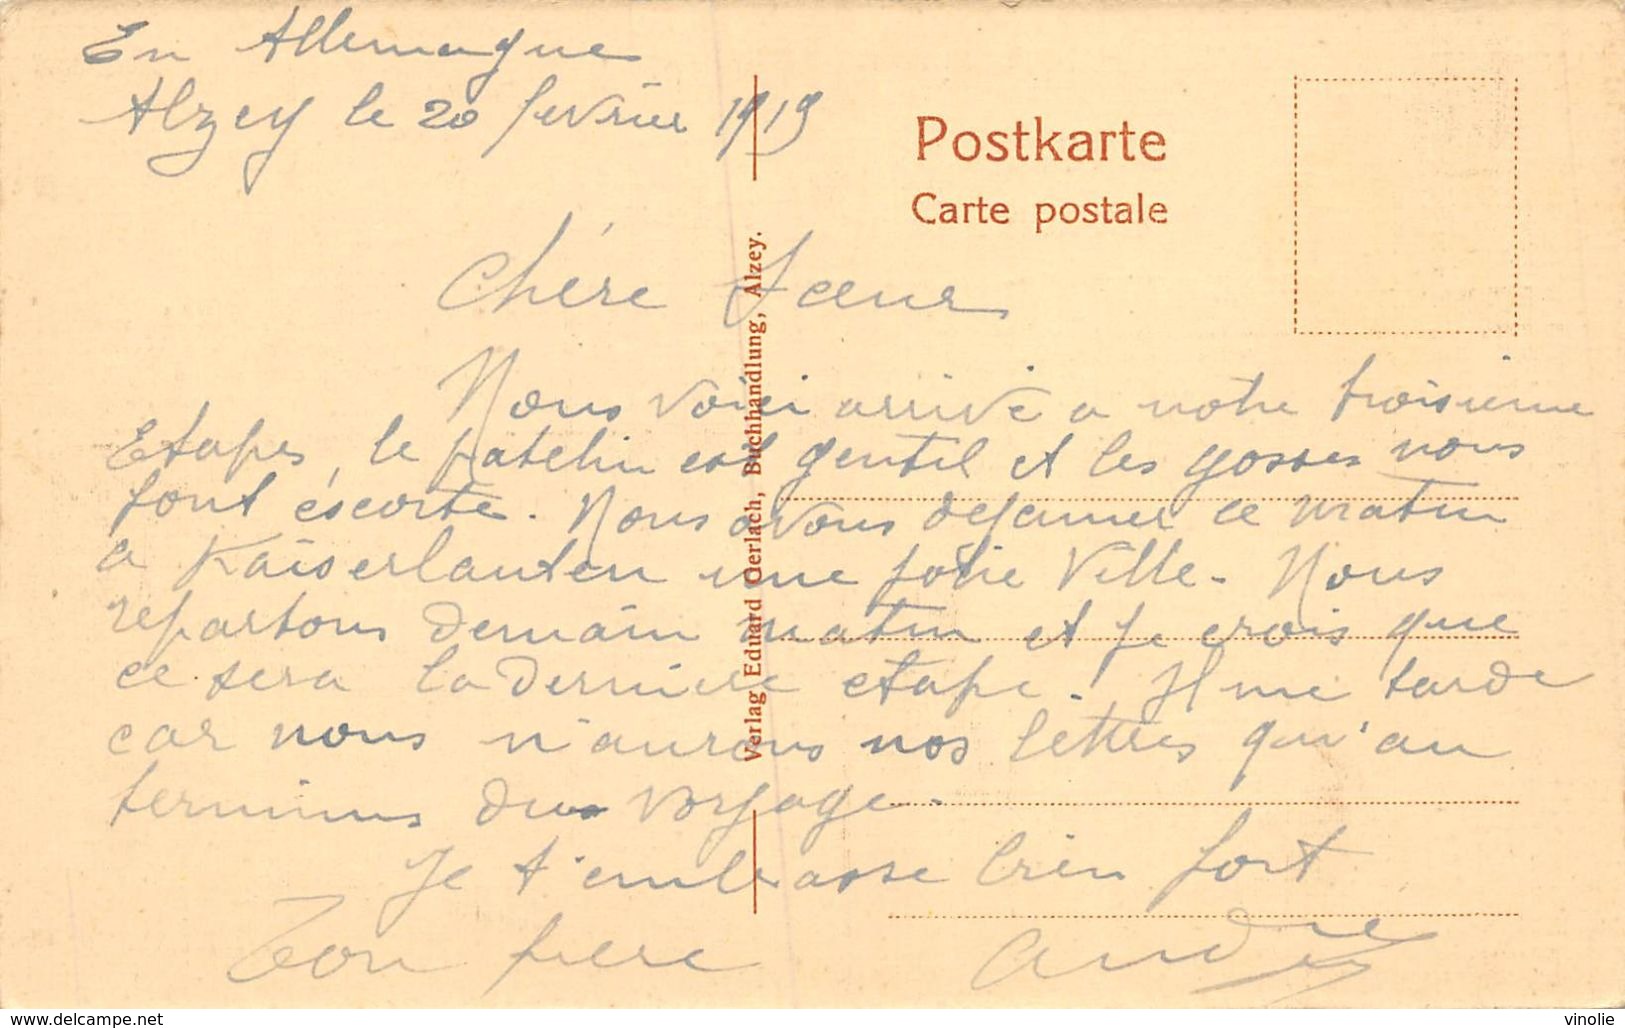 En Allemagne
Alzey le 20 fevrier 1919
Postkarte
Carte postale
Verlag Eduard Oerlach, Buchhandlung, Alzey.
Chére Soeur
Nous voici arrivé a notre troisieme
Etapes, le patelin est gentil et les gosses nous
font éscorte. Nous avous dejeuner ce matin
a Kaiserlauten une jolie Ville. Nous
repartons demain matin et je crois que
ce sera la derniere etape. Il me tarde
car nous n'aurons nos lettres qu'au
terminus du voyage.
Je t'embrasse bien fort
Ton frere André
www.delcampe.net
vinolie